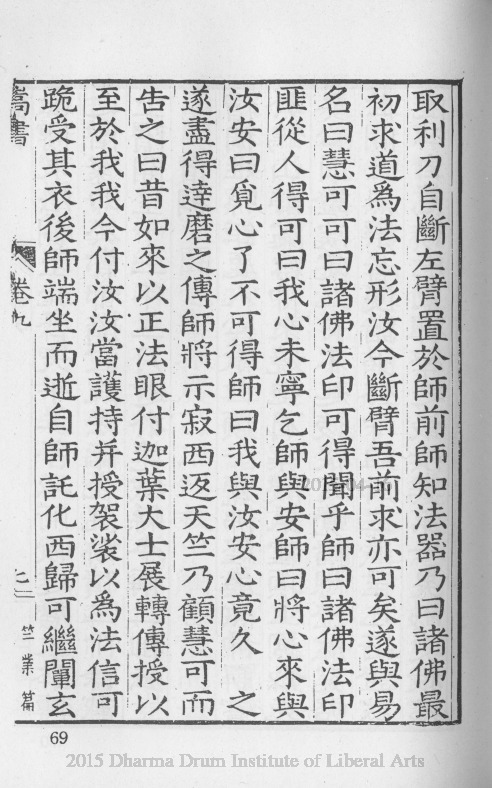 取利刀自斷左臂置於師前師知法器乃曰諸佛最
初求道為法忘形汝今斷臂吾前求亦可矣遂與易
名曰慧可可曰諸佛法印可得聞乎師曰諸佛法印
匪從人得可曰我心未寧乞師與安師曰將心來與
汝安曰覓心了不可得師曰我與汝安心竟久之
遂盡得達磨之傳師將示寂西返天竺乃顧慧可而
告之曰昔如來以正法眼付迦葉大士展轉傳授以
至於我我今付汝汝當護持并授袈裟以為法信可
跪受其衣後師端坐而逝自師託化西歸可繼闡玄
嵩書 卷九 竺業篇
69
2015 Dharma Drum Institute of Liberal Arts